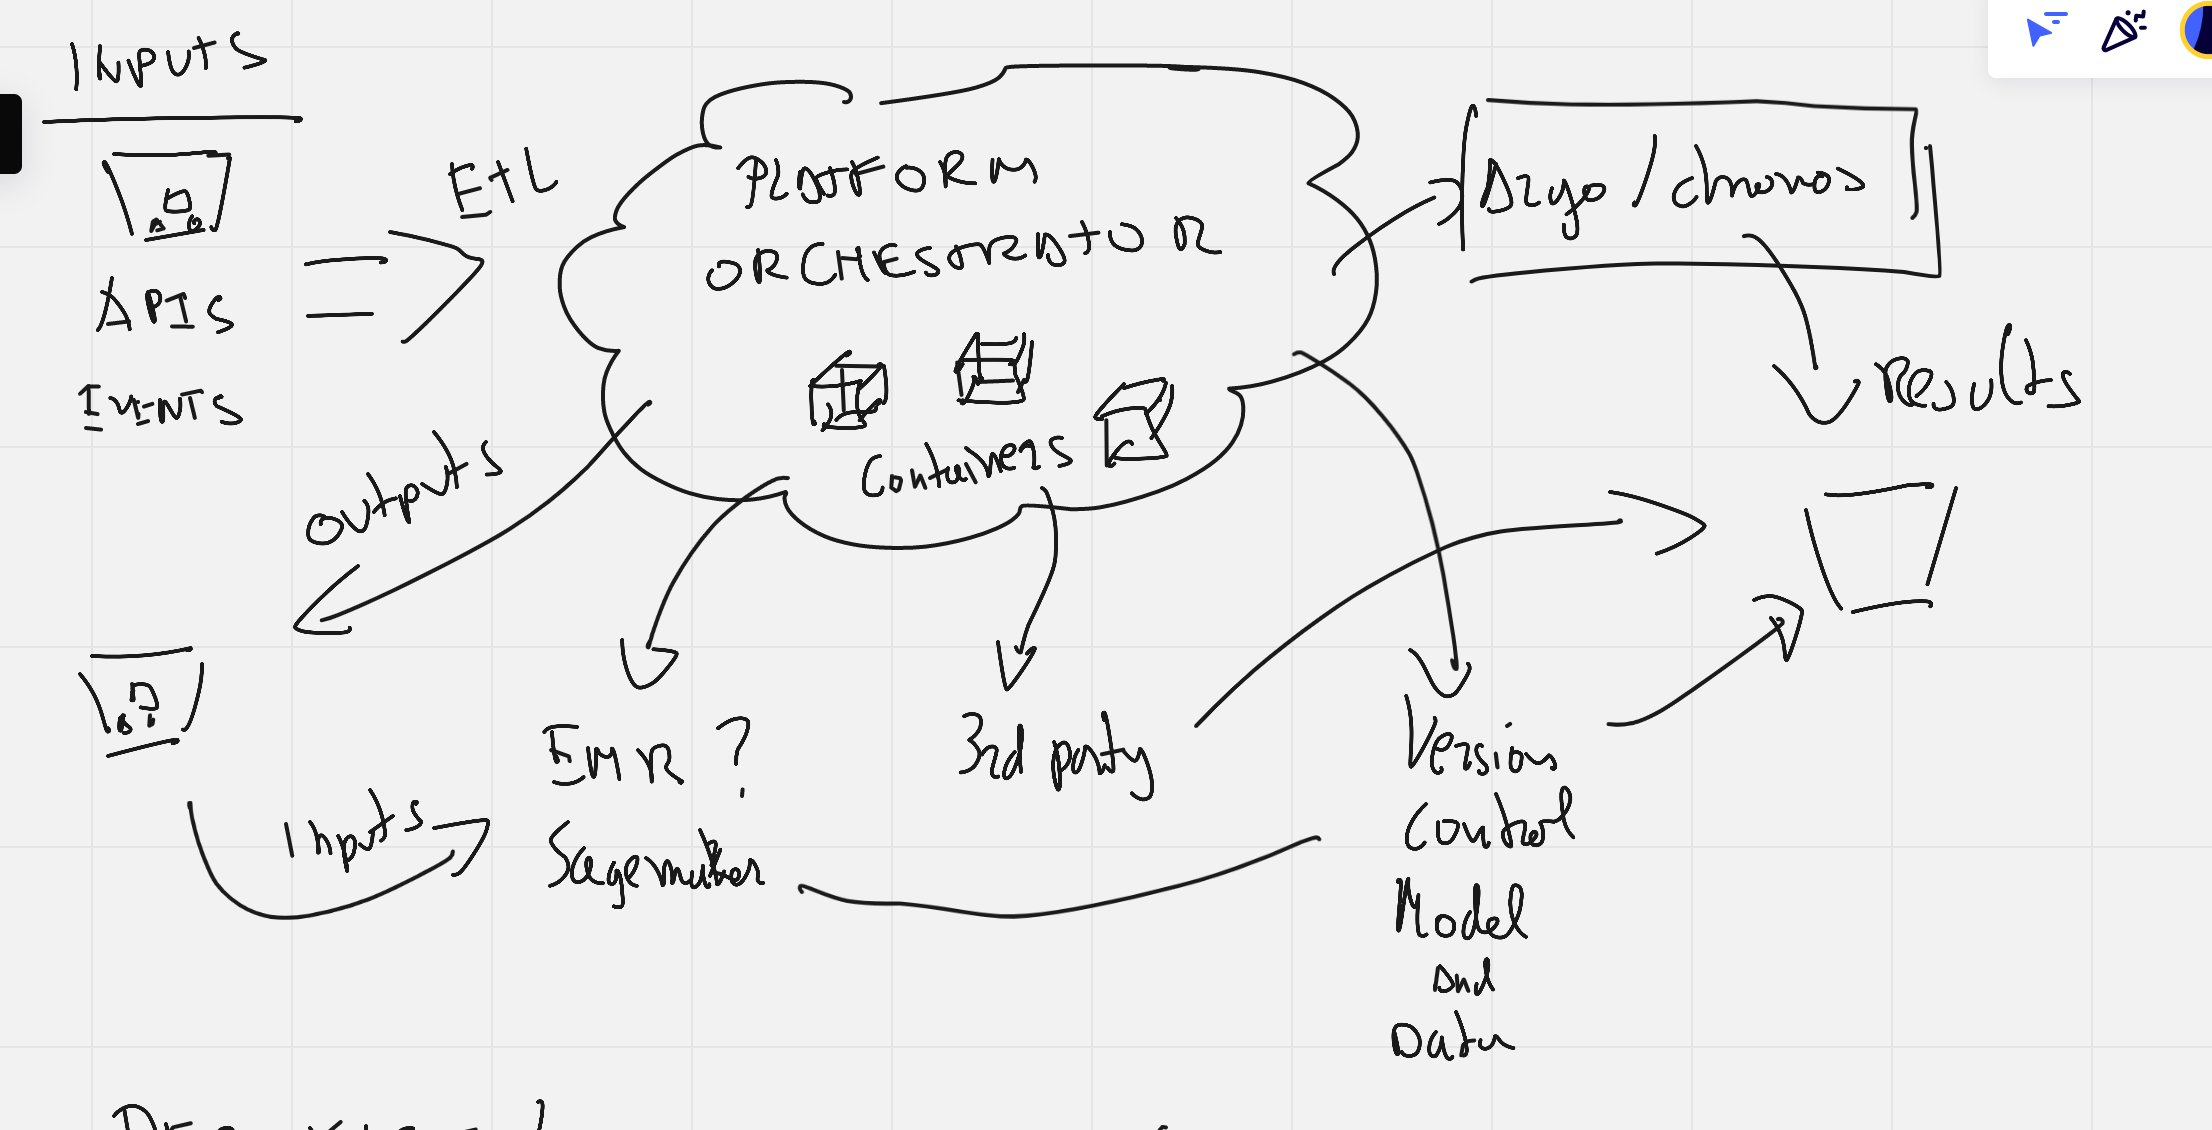 INPUTS
EtL
APIs
EVENTS
PLATFORM
ORCHESTRATOR
Containers
Argo / chronos
Results
outputs
Inputs
EMR ?
Sagemaker
3rd party
Version
Control
Model
and
Data